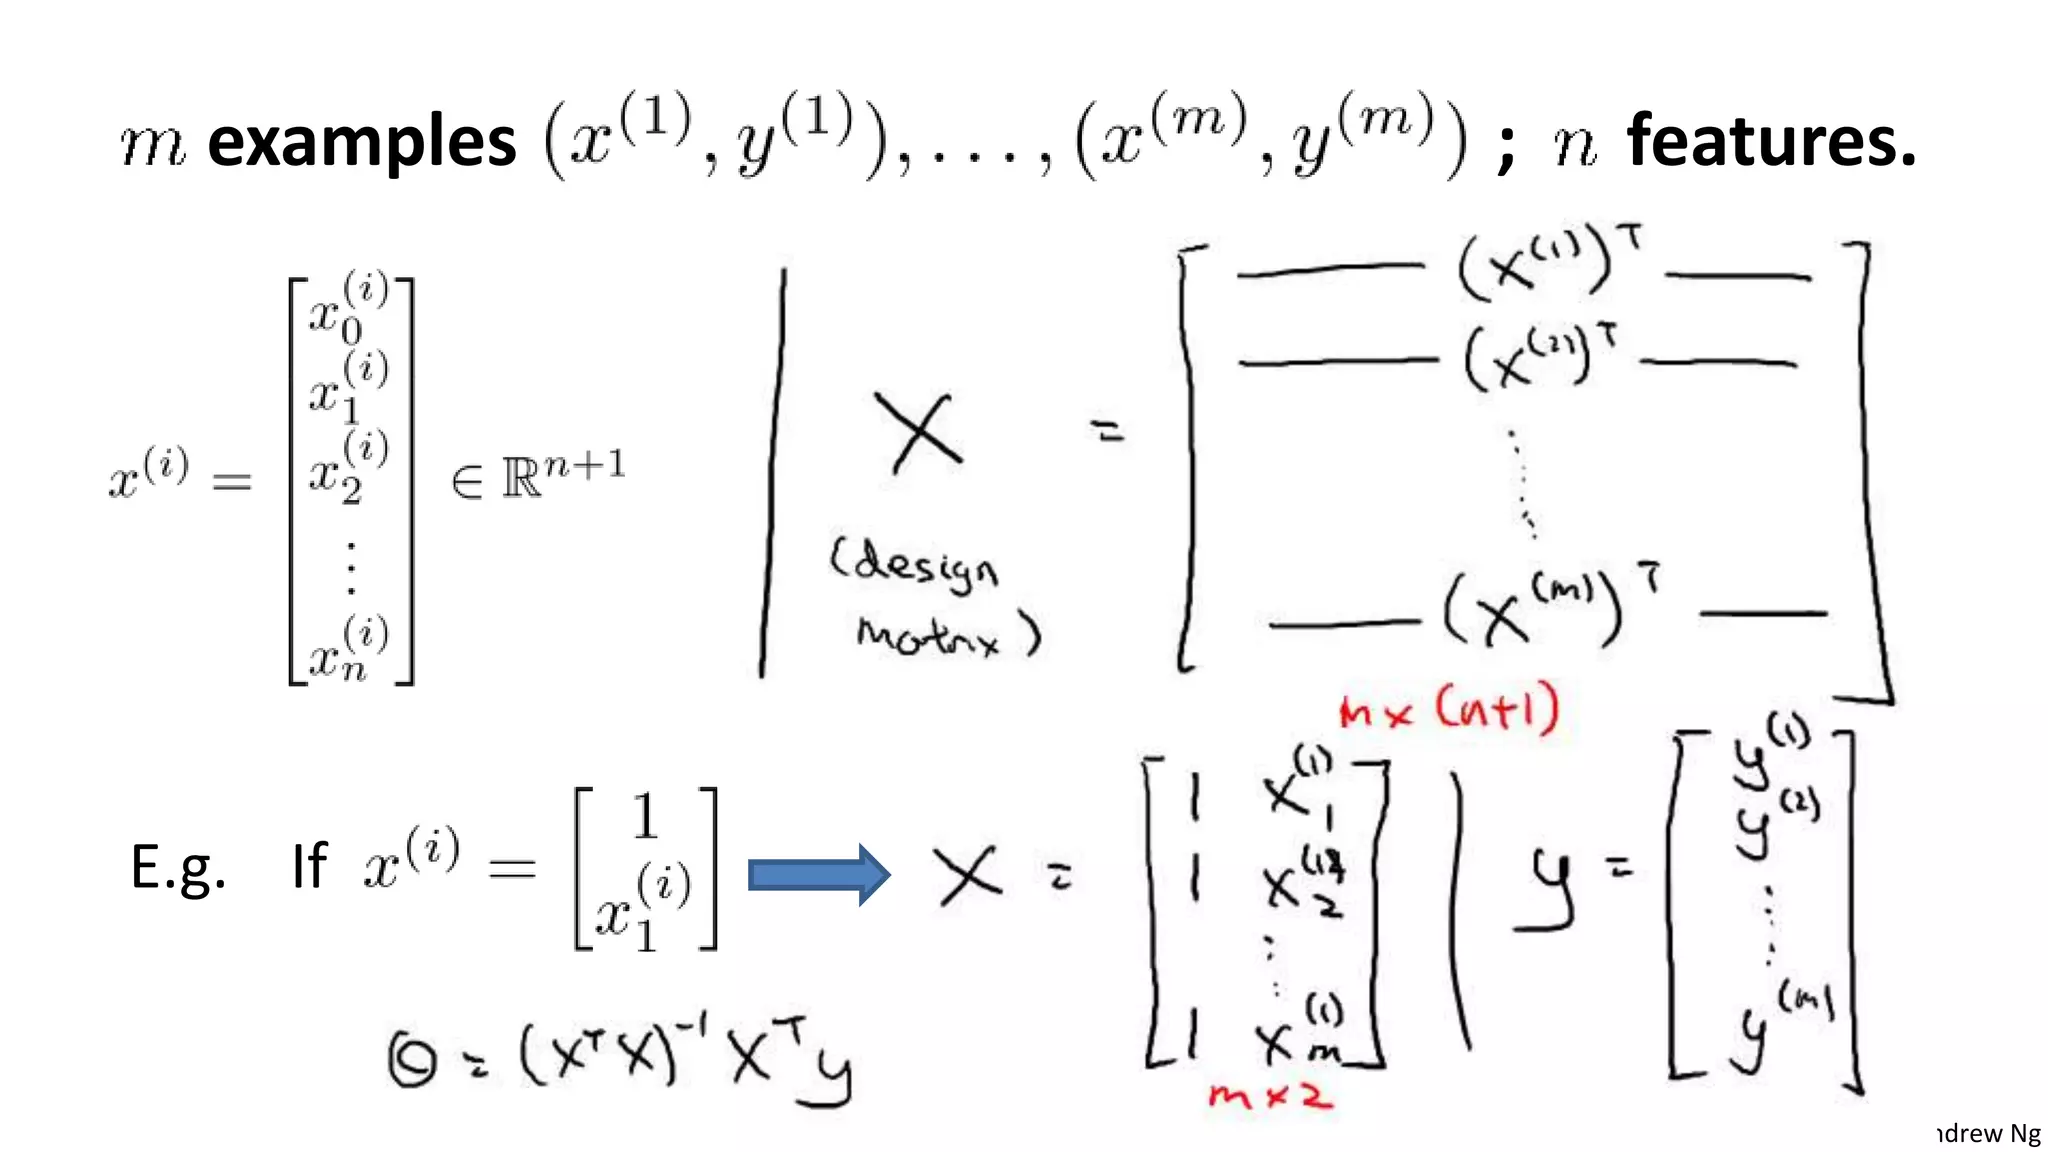 m examples (x^(1), y^(1)), . . . , (x^(m), y^(m)) ; n features.
x^(i) = [x_0^(i) x_1^(i) x_2^(i) ⋮ x_n^(i)] ∈ ℝ^(n+1)
X = [— (x^(1))^T — — (x^(2))^T — ⋮ — (x^(m))^T —]
(design
matrix)
m x (n+1)
E.g. If x^(i) = [1 x_1^(i)]
X = [1 x_1^(1) 1 x_2^(1) ⋮ 1 x_m^(1)]
m x 2
y = [y^(1) y^(2) ⋮ y^(m)]
Θ = (X^T X)^-1 X^T y
ndrew Ng